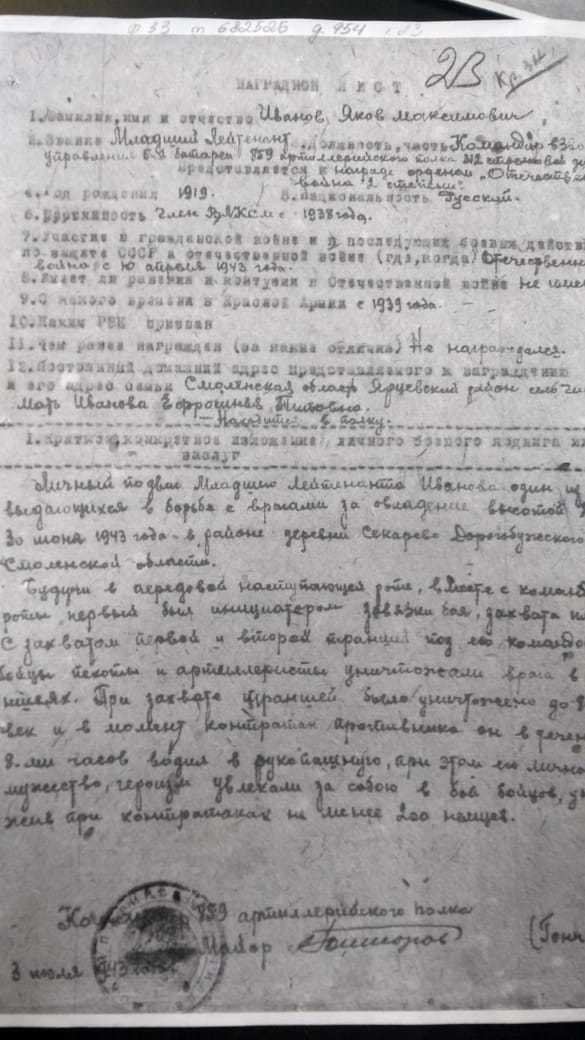 ф. 33 682526
НАГРАДНОЙ ЛИСТ
1. Фамилия, имя и отчество Иванов Яков Максимович,
2. Звание Младший Лейтенант. Должность, часть Командир взво
управления батареи 859 артиллерийского полка
представляется к награде орденом „Отечеств
война 2 степени".
4. Год рождения 1919. 5. Национальность Русский.
6. Партийность Член ВЛКСМ с 1938 года.
7. Участие в гражданской войне и в последующих боевых действ
по защите СССР и отечественной войне (где, когда) Отечествен
война с 10 апреля 1943 года.
8. Имеет ли ранения и контузии в Отечественной войне не име
9. С какого времени в Красной Армии с 1939 года.
10. Каким РВК призван
11. Чем ранее награжден (за какие отличия) Не награждался.
12. Постоянный домашний адрес представляемого к награждению
и его адрес семьи Смоленская область Ярцевский район село
Мать Иванова Ефросинья Титовна.
Находится в полку.
1. Краткое, конкретное изложение личного боевого подвига ил
заслуг
Личный подвиг Младшего Лейтенанта Иванова один из
выдающихся в борьбе с врагами за овладение высотой
30 июня 1943 года в районе деревни Секарево Дорогобужского
Смоленской области.
Будучи в передовой наступающей роте, вместе с команд
роты первый был инициатором завязки боя, захвата
С захватом первой и второй траншей под его командо
бойцы пехоты и артиллеристы уничтожали врага в
При захвате траншей было уничтожено до
век и в момент контратак противника он в течен
8-ми часов водил в рукопашную, при этом его лично
мужество, героизм увлекали за собою в бой бойцов, ун
жив при контратаках не менее 200 немцев.
Командир 859 артиллерийского полка
Майор (Гонч
3 июля 1943 года